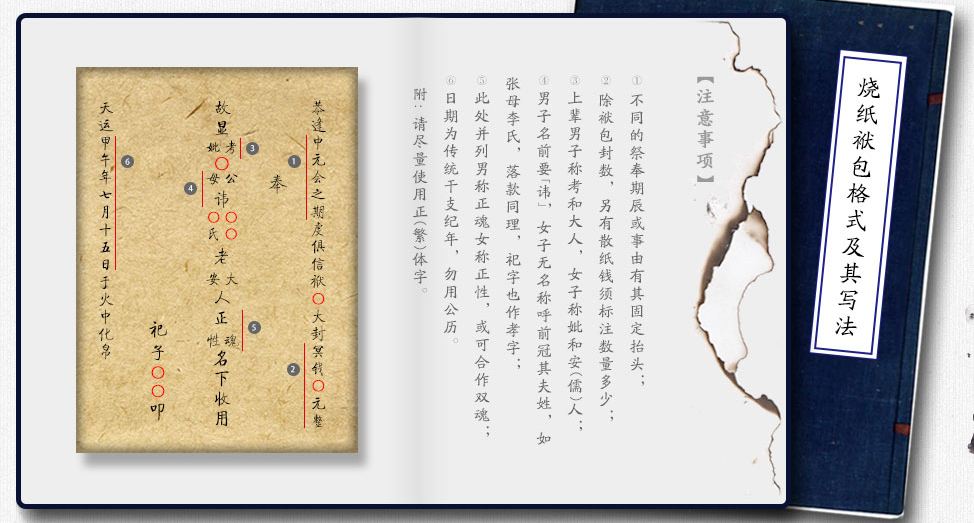 烧纸袱包格式及其写法
【注意事项】
①不同的祭奉期辰或事由有其固定抬头；
②除袱包封数，另有散纸钱须标注数量多少；
③上辈男子称考和大人，女子称妣和安(儒)人；
④男子名前要「讳」，女子无名称呼前冠其夫姓，如
张母李氏，落款同理，祀字也作孝字；
⑤此处并列男称正魂女称正性，或可合作双魂；
⑥日期为传统干支纪年，勿用公历。
附：请尽量使用正(繁)体字。
恭逢中元会之期虔俱信袱〇大封冥钱〇元整
1
2
奉
故显考妣〇公母讳〇〇〇氏老大安人正魂性名下收用
3
4
5
祀子〇〇叩
天运甲午年七月十五日于火中化帛
6